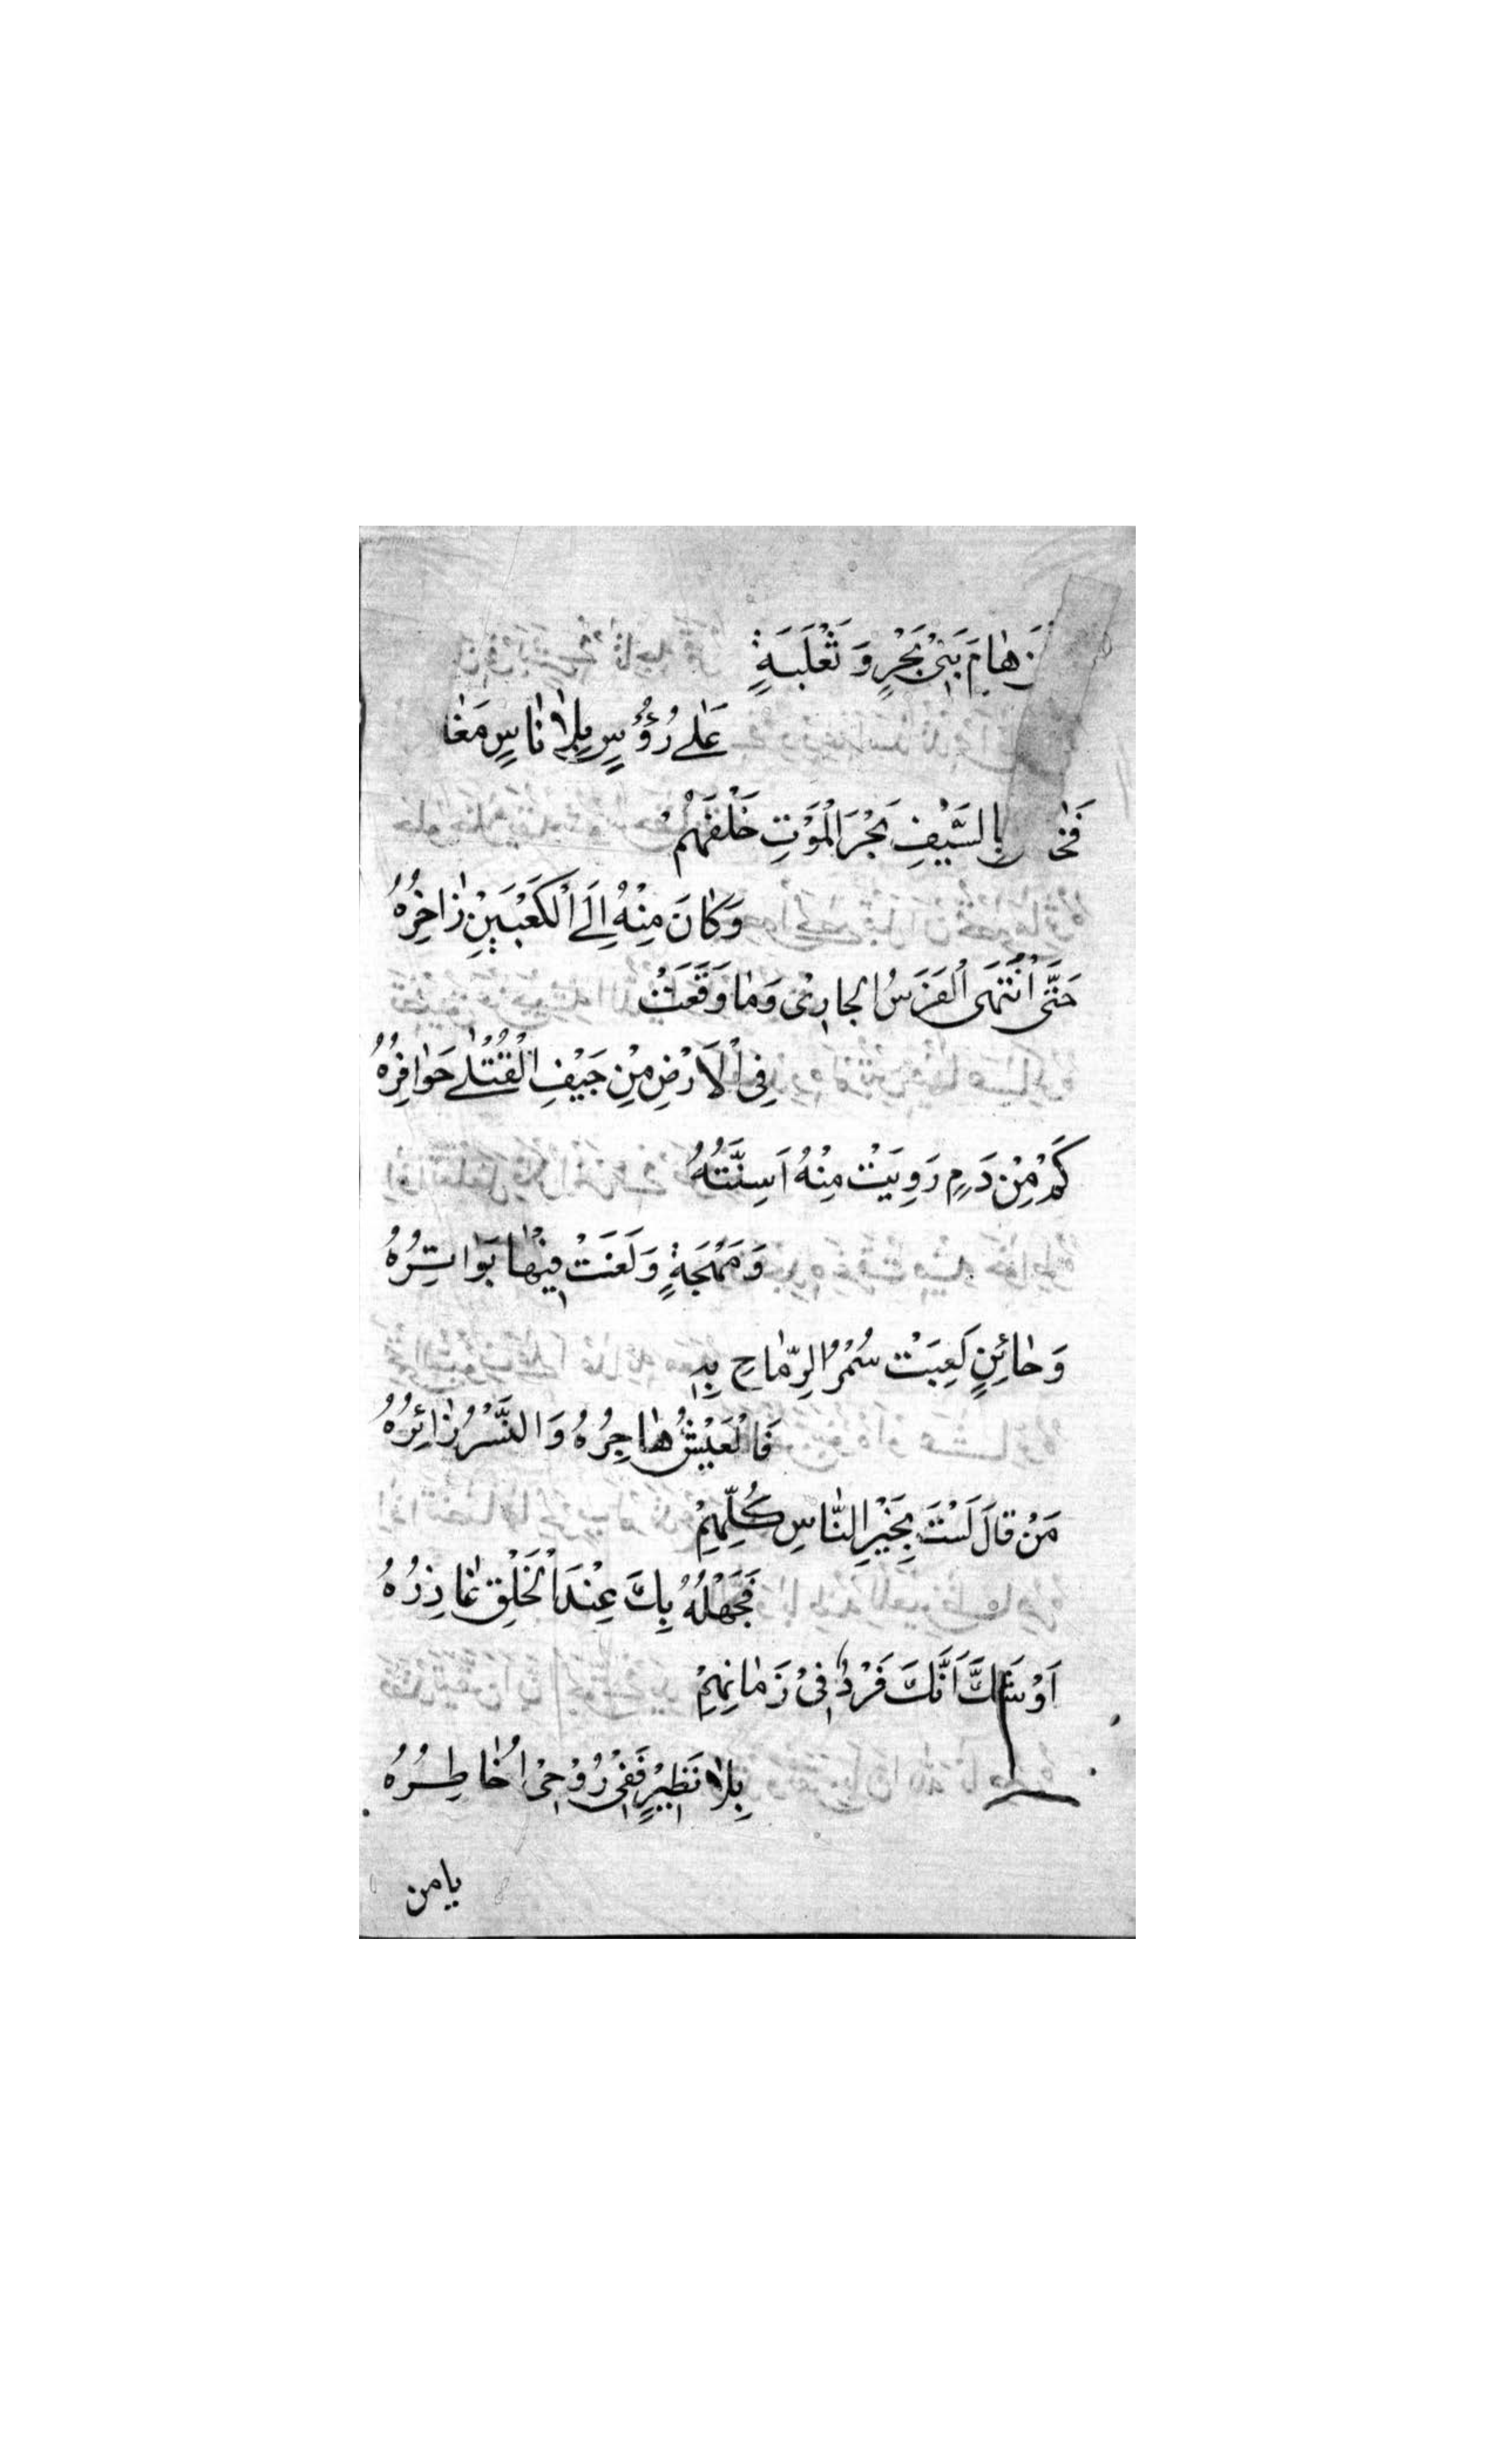 هَامَ بَنِيْ بَحْرٍ وَ ثَعْلَبَةٍ
عَلٰى رُؤُسٍ بِلَا نَاسٍ مَغَا
بِالسَّيْفِ بَحْرَ الْمَوْتِ خَلْفَهُمْ
وَكَانَ مِنْهُ اِلَى الْكَعْبَيْنِ زَاخِرُهُ
حَتّٰى انْتَهَى الْفَرَسُ الْجَارِيْ وَمَا وَقَعَتْ
فِي الْاَرْضِ مِنْ جَيْفِ الْقُتْلٰى حَوَافِرُهُ
كَمْ مِنْ دَمٍ رَوِيَتْ مِنْهُ اَسِنَّتُهُ
وَ مُهْجَةٍ وَلَغَتْ فِيْهَا بَوَاتِرُهُ
وَحَائِنٍ لَعِبَتْ سُمْرُ الرِّمَاحِ بِهِ
فَالْعَيْشُ هَاجِرُهُ وَالنَّسْرُ زَائِرُهُ
مَنْ قَالَ لَسْتَ بِخَيْرِ النَّاسِ كُلِّهِمْ
فَجَهْلُهُ بِكَ عِنْدَ الْخَلْقِ عَاذِرُهُ
اَوْ شَكَّ اَنَّكَ فَرْدٌ فِيْ زَمَانِهِمْ
بِلَا نَظِيْرٍ فَفِيْ رُوْحِيْ اُخَاطِرُهُ
يامن